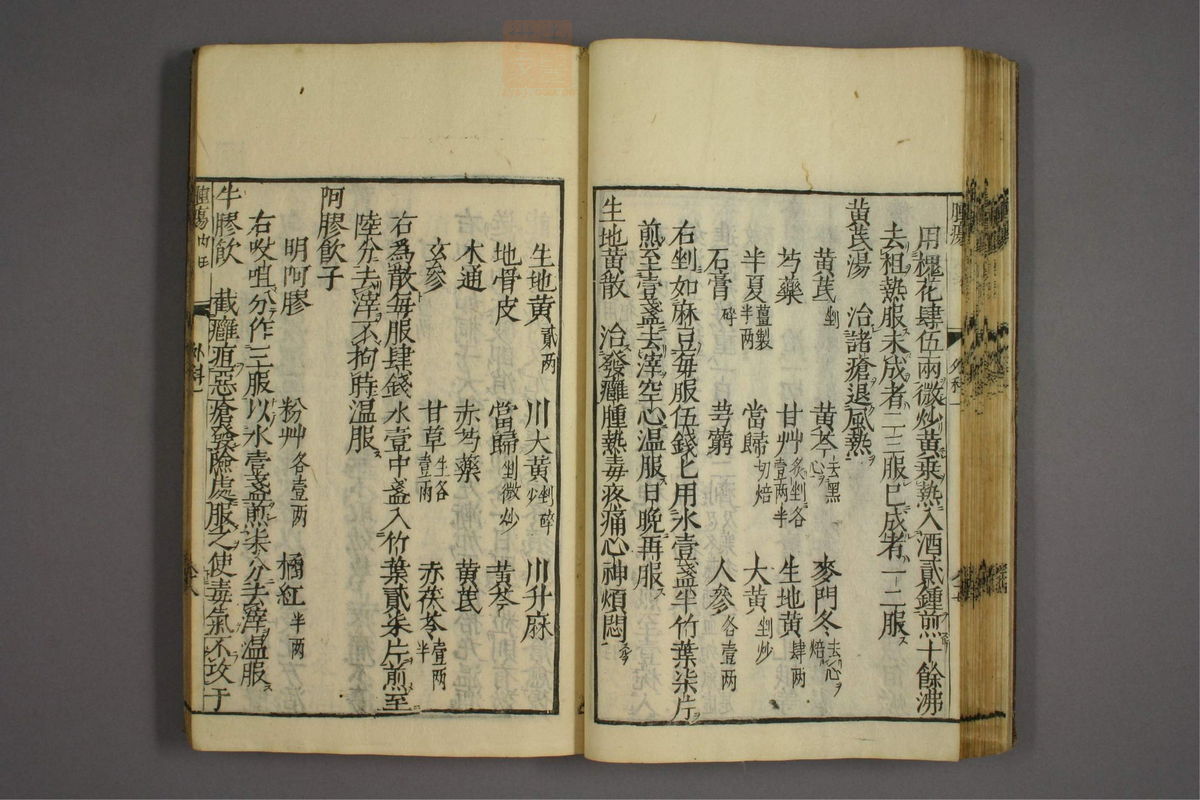 用槐花肆伍兩微炒黄乗熱入酒貳鍾煎十餘沸
去柤熱服未成者二三服已成者一二服
黄芪湯 治諸瘡退風熱
黄芪剉 黄芩去黑心 麥門冬去心焙
芍藥 甘艸炙剉各壹两半 生地黄肆两
半夏薑製半两 當歸切焙 大黄剉炒
石膏碎 芎藭 人參各壹两
右剉如麻豆毎服伍錢匕用水壹盞半竹葉柒片
煎至壹盞去滓空心温服日晚再服
生地黄散 治發癰腫熱毒疼痛心神煩悶
生地黄貳两 川大黄剉碎炒 川升麻
地骨皮 當歸剉微炒 黄芩
木通 赤芍藥 黄芪
玄參 甘草生各壹两 赤茯苓壹两半
右為散毎服肆錢水壹中盞入竹葉貳柒片煎至
陸分去滓不拘時温服
阿膠飲子
明阿膠 粉艸各壹两 橘紅半两
右㕮咀分作三服以水壹盞煎柒分去滓温服
牛膠飲 截癰疽惡瘡發險處服之使毒氣不攻于
外科一